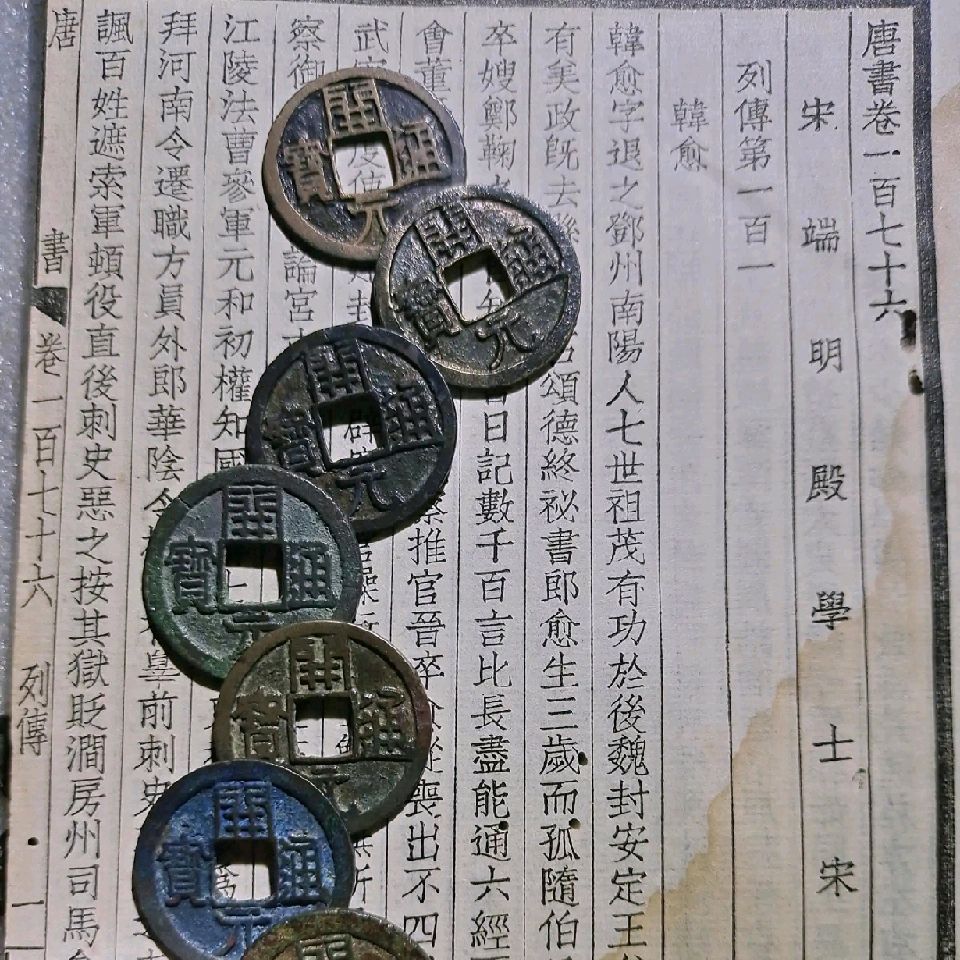 唐書卷一百七十六
宋端明殿學士宋
列傳第一百一
韓愈
韓愈字退之鄧州南陽人七世祖茂有功於後魏封安定王
有美政既去縣頌德終祕書郎愈生三歲而孤隨伯
卒嫂鄭鞠日記數千百言比長盡能通六經
會董推官晉卒從喪出不四
武
察御論宮
江陵法曹參軍元和初權知國
拜河南令遷職方員外郎華陰令前刺史
諷百姓遮索軍頓役直後刺史惡之按其獄貶澗房州司馬
唐書 卷一百七十六 列傳 一
開元通寶
開元通寶
開元通寶
開元通寶
開元通寶
開元通寶
開